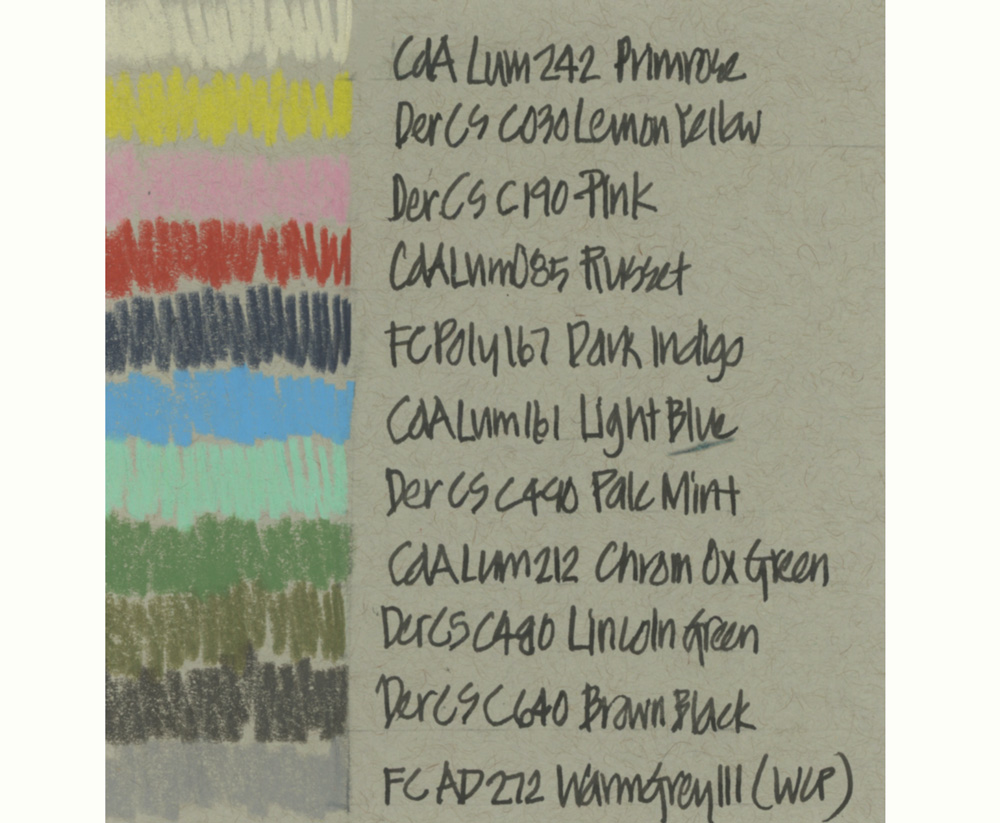 CdA Lum 242 Primrose
Der CS C030 Lemon Yellow
Der CS C190 Pink
CdA Lum 085 Russet
FC Poly 167 Dark Indigo
CdA Lum 161 Light Blue
Der CS C490 Pale Mint
CdA Lum 212 Chrom Ox Green
Der CS C480 Lincoln Green
Der CS C640 Brown Black
FC AD 272 Warm Grey III (WCP)